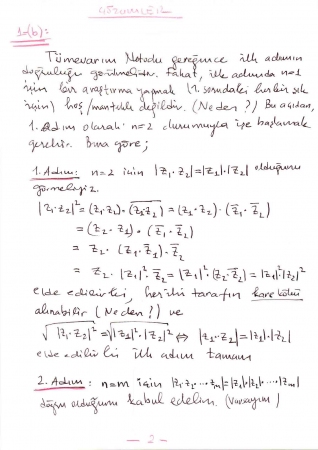 ÇÖZÜMLER
1-(b):
Tümevarım Metodu gereğince ilk adımın
doğruluğu görülmelidir. Fakat, ilk adımda n=1
için bir araştırma yapmak (1. sorudaki her bir şık
için) hoş/mantıklı değildir. (Neden?) Bu açıdan,
1. Adım olarak n=2 durumuyla işe başlamak
gerekir. Buna göre;
1. Adım: n=2 için |z₁·z₂|=|z₁|·|z₂| olduğunu
görmeliyiz.
|z₁·z₂|²=(z₁·z₂)·(z̅₁·z̅₂)=(z₁·z₂)·(z̅₁·z̅₂)
=(z₂·z₁)·(z̅₁·z̅₂)
= z₂·(z₁·z̅₁)·z̅₂
= z₂·|z₁|²·z̅₂=|z₁|²·(z₂·z̅₂)=|z₁|²·|z₂|²
elde edilir ki, her iki tarafın karekökü
alınabilir (Neden?) ve
√|z₁·z₂|²=√|z₁|²·|z₂|² ⇔ |z₁·z₂|=|z₁|·|z₂|
elde edilir ki ilk adım tamam
2. Adım: n=m için |z₁·z₂·...·zₘ|=|z₁|·|z₂|·...·|zₘ|
doğru olduğunu kabul edelim. (Varsayım)
- 2 -